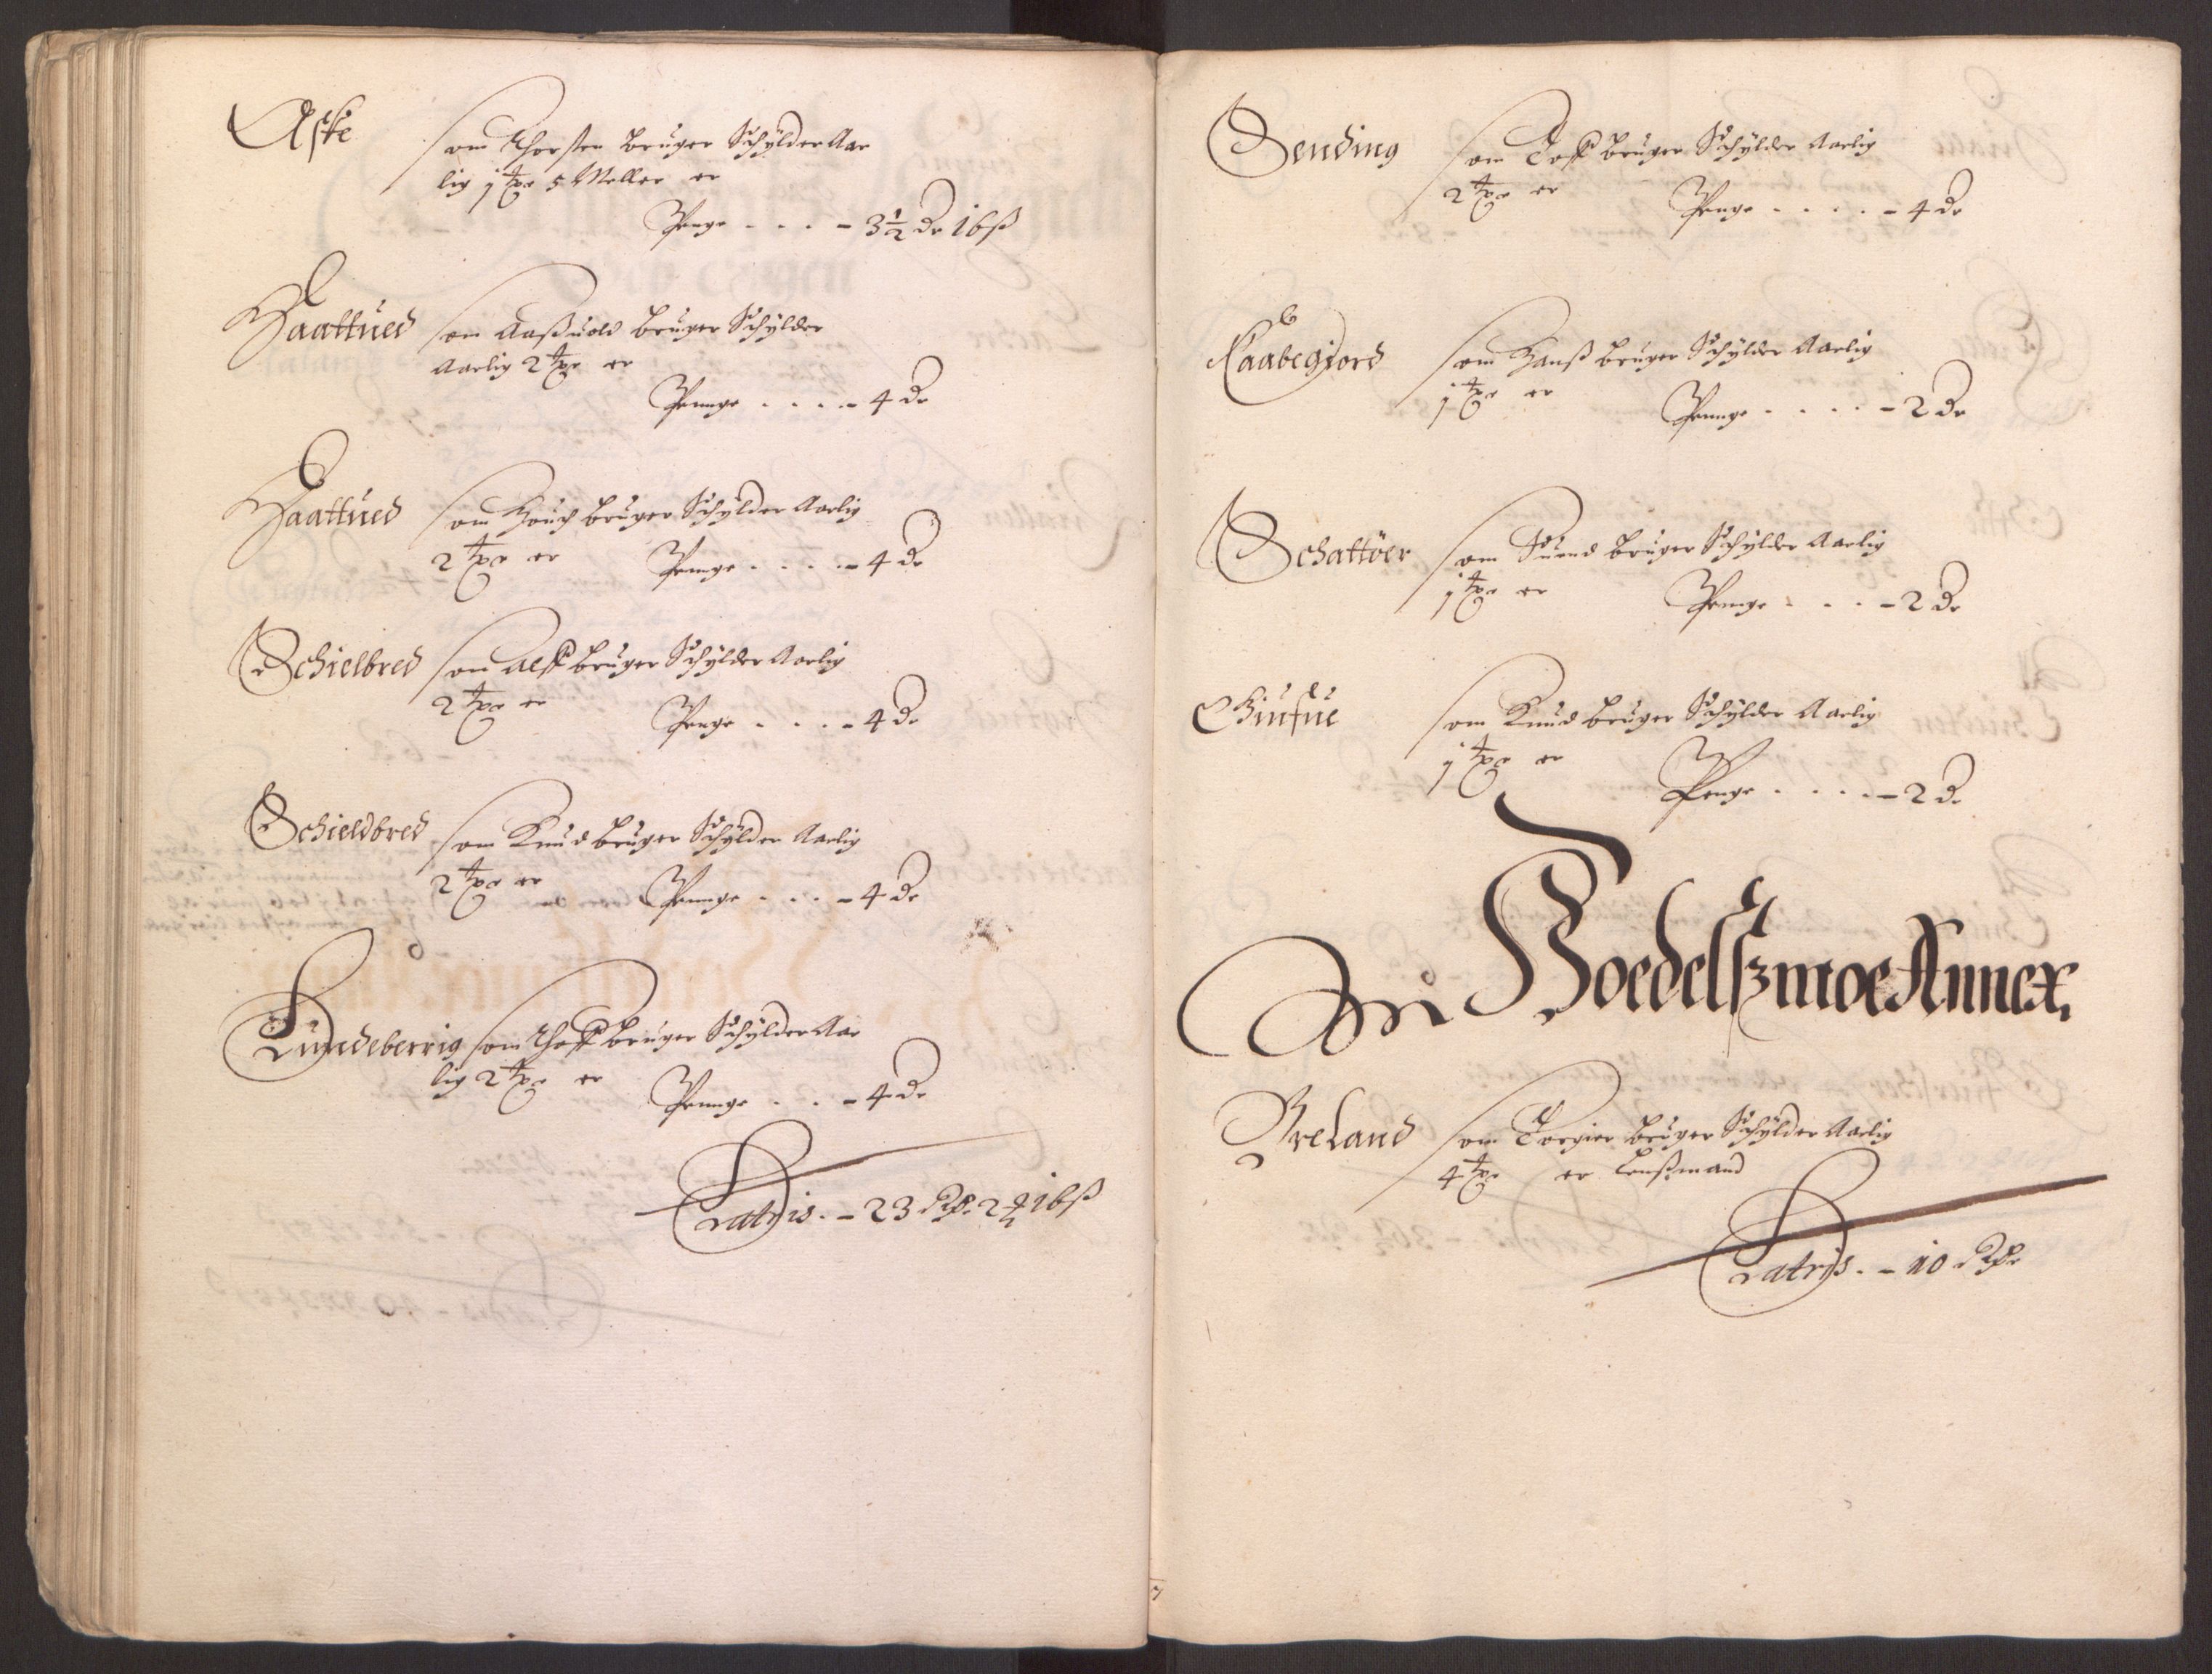 Aske som Thorsten bruger Schylder Aar
lig 1 tpd 5 Meller er
Penge . . . - 3½ Dr 16 ß
Haattued som Aaßuold bruger Schylder
Aarlig 2 tpd er
Penge . . . . - 4 Dr
Haattued som Houg bruger Schylder Aarlig
2 tpd er Penge . . . . - 4 Dr
Schielbred som Alff bruger Schylder Aarlig
2 tpd er Penge . . . . - 4 Dr
Schieldbred som Knud bruger Schylder Aarlig
2 tpd er Penge . . . - 4 Dr
Lundeberrig som Thoff bruger Schylder Aar
lig 2 tpd er Penge . . . - 4 Dr
Latris . - 23 Rdr 2 ½ 16 ß
Sending som Toff bruger Schylder Aarlig
2 tpd er Penge . . . . . - 4 Dr
Raabegiord som Hanß bruger Schylder Aarlig
1 tpd er Penge . . . . - 2 Dr
Schattöer som Suend bruger Schylder Aarlig
1 tpd er Penge . . . - 2 Dr
som Knud bruger Schylder Aarlig
1 tpd er Penge . . . . - 2 Dr
Boedelszmoe Annex.
Breland som Torgier bruger Schylder Aarlig
4 tpd er Lenßmand
Latris . - 10 Rdr